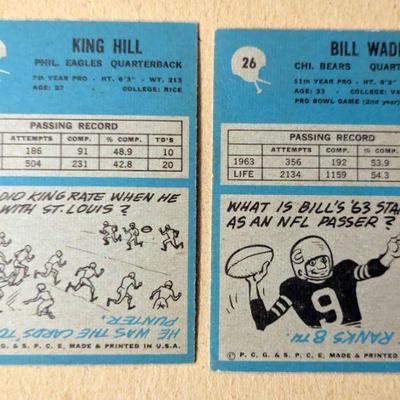 KING HILL
PHIL. EAGLES QUARTERBACK
7th YEAR PRO - HT. 6'3" - WT. 213
AGE: 27 - COLLEGE: RICE
PASSING RECORD
ATTEMPTS COMP. % COMP. TD'S
186 91 48.9 10
504 231 42.8 20
DID KING RATE WHEN HE
WITH ST. LOUIS?
HE WAS THE CARDS' TO
PUNTER.
© P. C. G. & S. P. C. E. MADE & PRINTED IN U.S.A.
26
BILL WAD
CHI. BEARS QUART
11th YEAR PRO - HT. 6'2"
AGE: 33 - COLLEGE: VAN
PRO BOWL GAME (2nd year)
PASSING RECORD
ATTEMPTS COMP. % COMP.
1963 356 192 53.9
LIFE 2134 1159 54.3
WHAT IS BILL'S '63 STA
AS AN NFL PASSER?
9
RANKS 8TH.
© P. C. G. & S. P. C. E. MADE & PRINTED IN